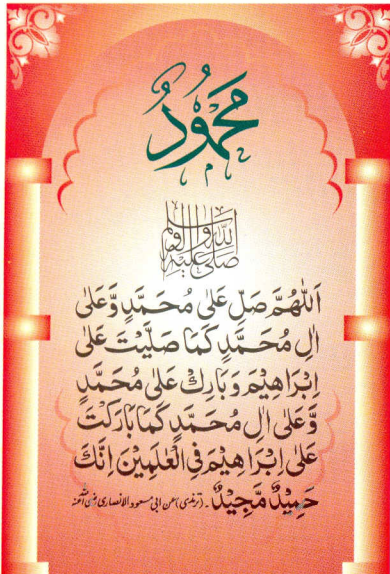 مَحْمُوْدٌ
صَلَّی اللّٰهُ عَلَیْهِ وَاٰلِهٖ وَسَلَّمَ
اَللّٰهُمَّ صَلِّ عَلٰی مُحَمَّدٍ وَّعَلٰی
اٰلِ مُحَمَّدٍ کَمَا صَلَّیْتَ عَلٰی
اِبْرَاهِیْمَ وَبَارِكْ عَلٰی مُحَمَّدٍ
وَّعَلٰی اٰلِ مُحَمَّدٍ کَمَا بَارَکْتَ
عَلٰی اِبْرَاهِیْمَ فِی الْعٰلَمِیْنَ اِنَّكَ
حَمِیْدٌ مَّجِیْدٌ۔ (ترمذی) عن ابی مسعود الانصاری رضی اللہ عنہ